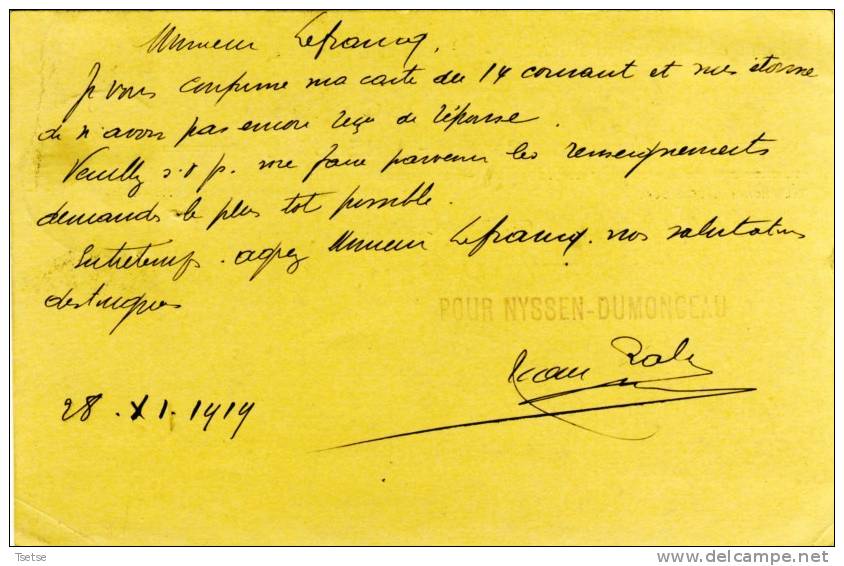 Monsieur Lefrancq,
Je vous confirme ma carte du 14 courant et suis étonné
de n'avoir pas encore reçu de réponse.
Veuillez s.v.p. me faire parvenir les renseignements
demandés le plus tôt possible.
Entretemps, agréez Monsieur Lefrancq, nos salutations
distinguées
POUR NYSSEN-DUMONCEAU
Jean
28 . XI . 1919
Tsetse
delcampe.net